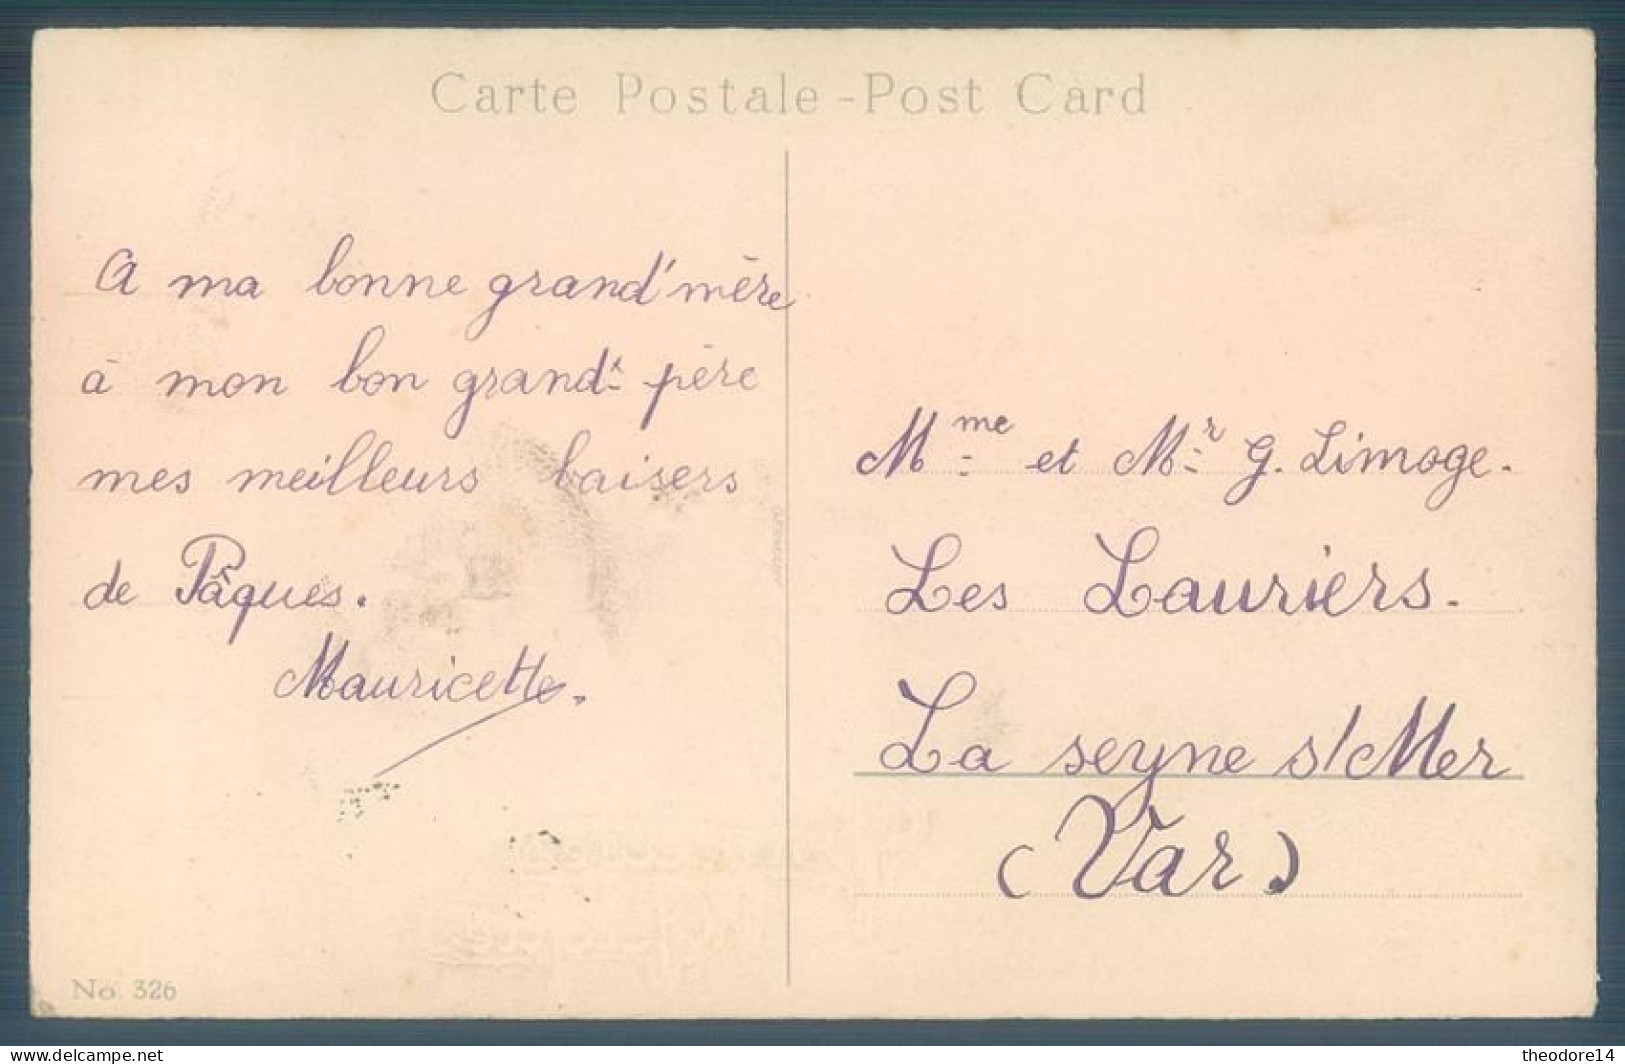 Carte Postale - Post Card
A ma bonne grand'mère
à mon bon grand-père
mes meilleurs baisers
de Pâques.
Mauricette.
Mme et Mr G. Limoge.
Les Lauriers.
La seyne s/Mer
(Var)
No. 326
theodore14
delcampe.net